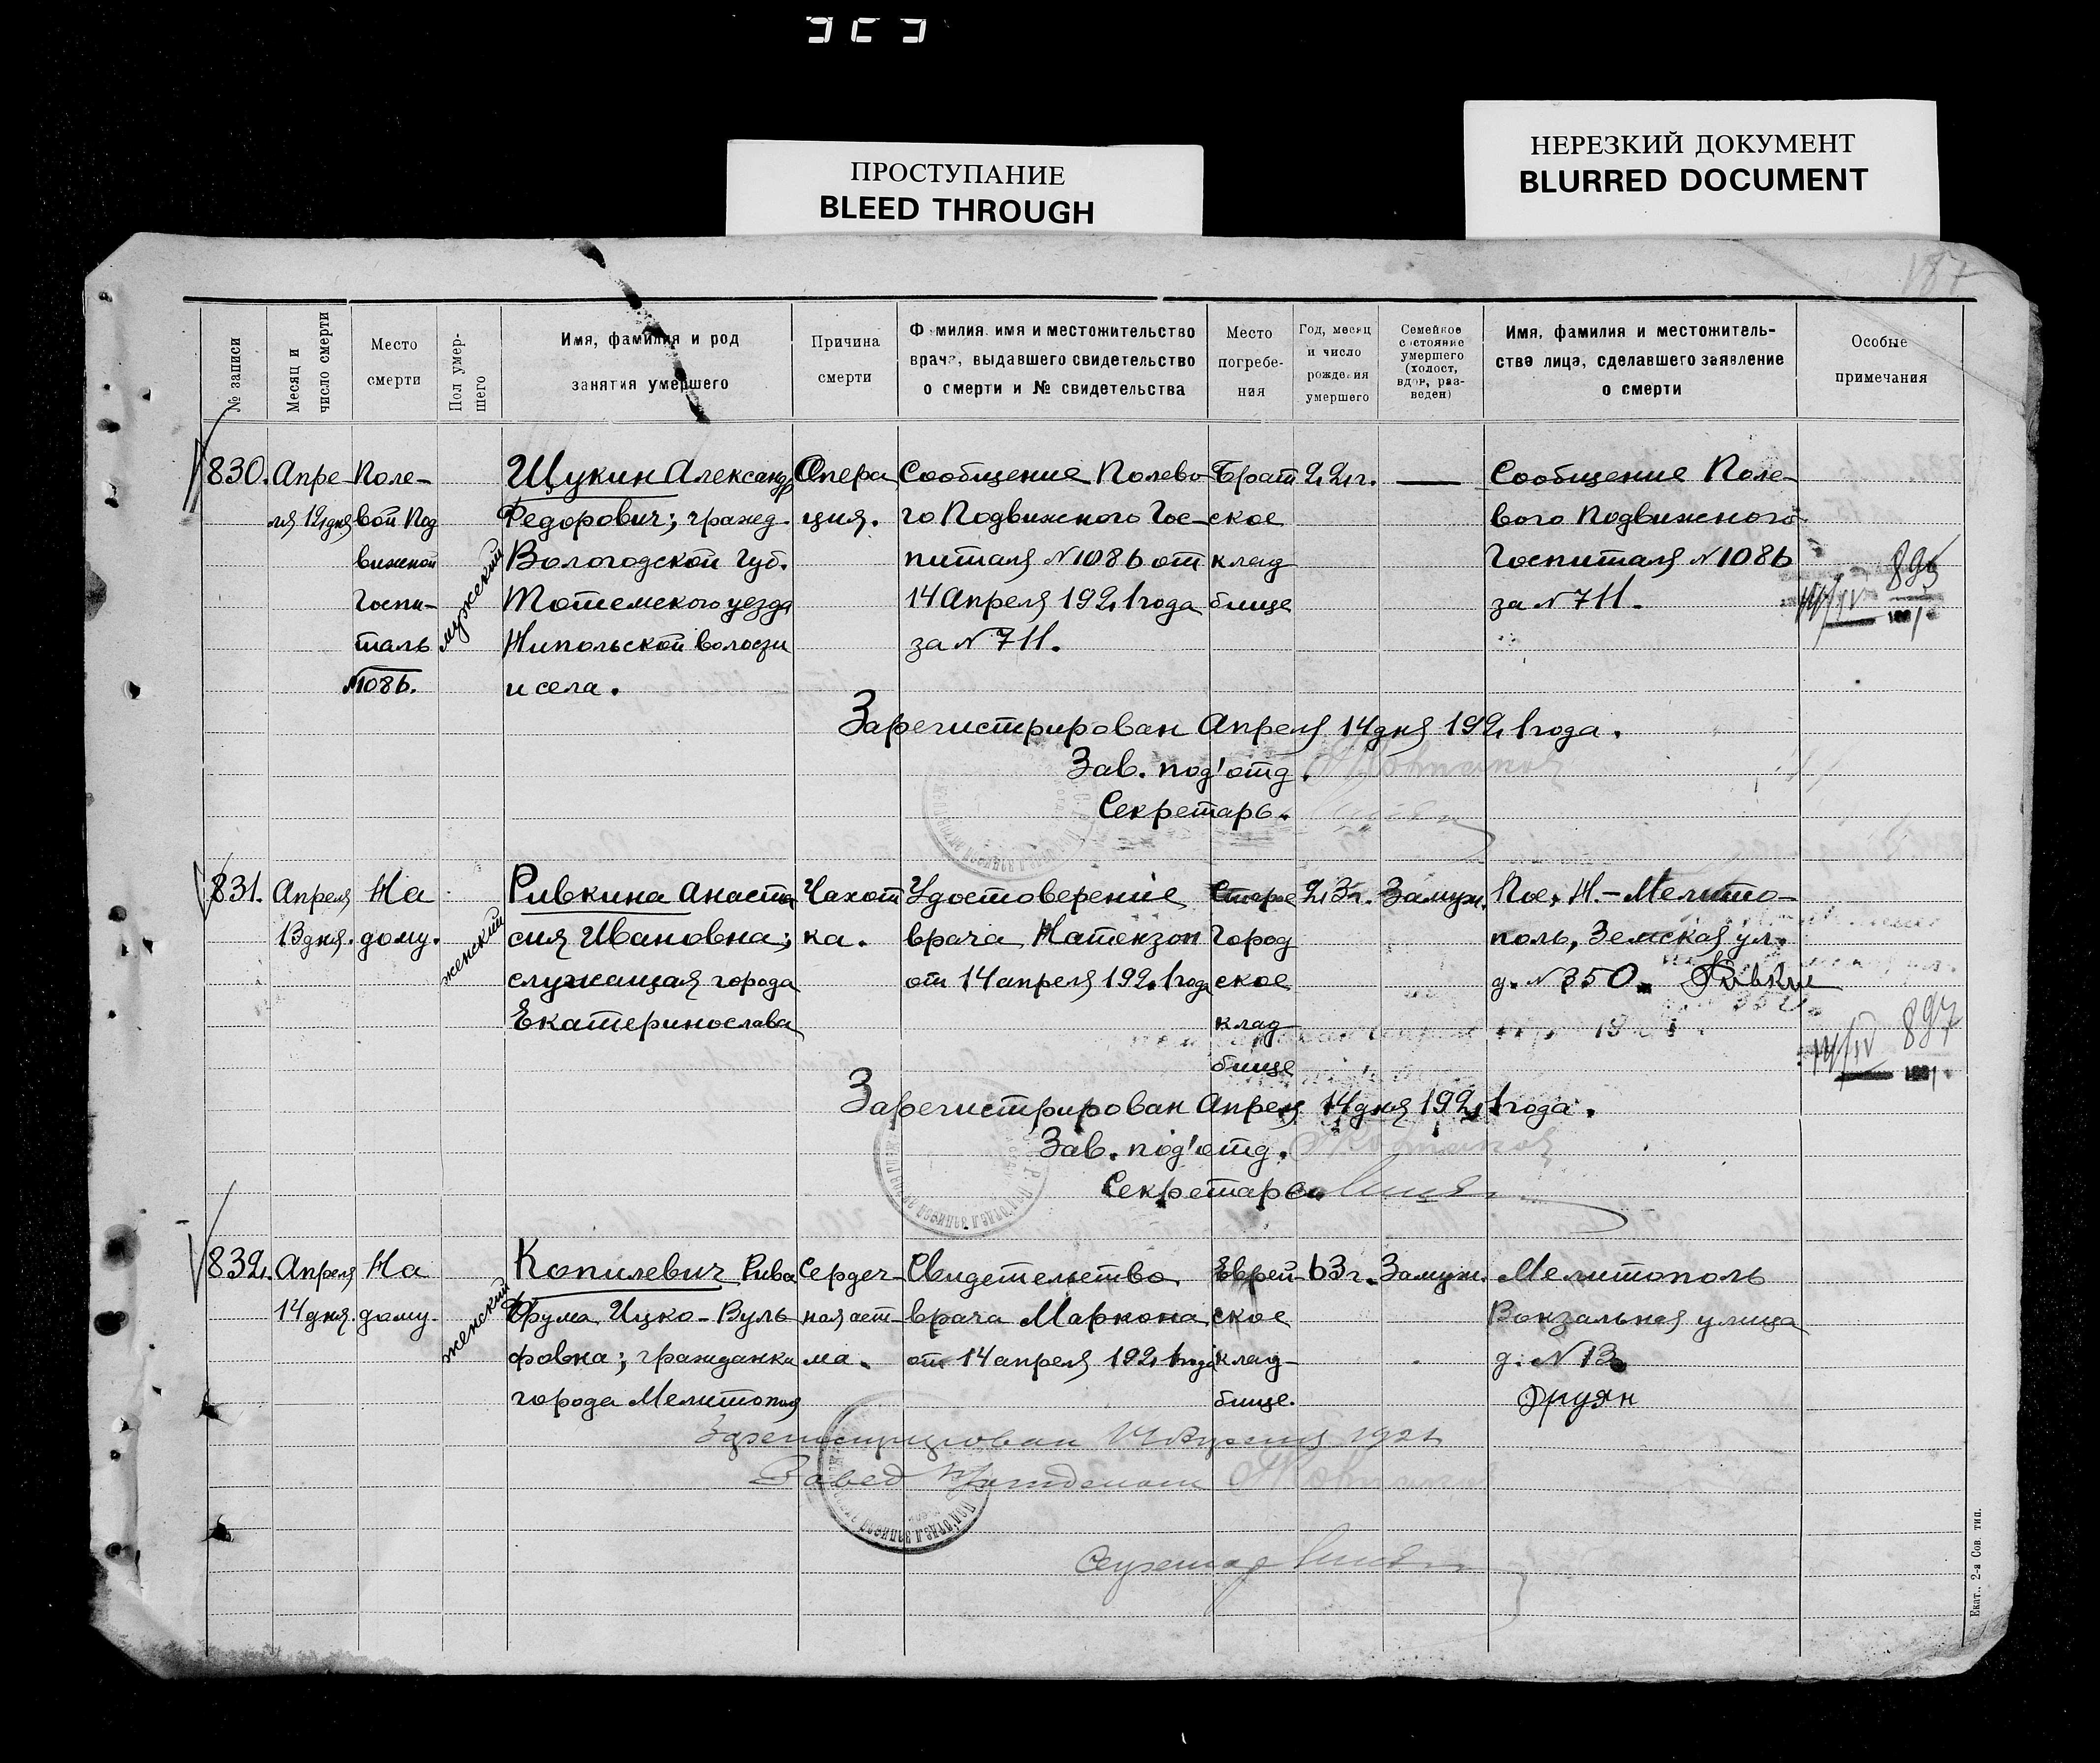 ПРОСТУПАНИЕ
BLEED THROUGH
НЕРЕЗКИЙ ДОКУМЕНТ
BLURRED DOCUMENT
187
№ записи
Месяц и
число смерти
Место
смерти
Пол умер-
шего
Имя, фамилия и род
занятия умершего
Причина
смерти
Фамилия, имя и местожительство
врача, выдавшего свидетельство
о смерти и № свидетельства
Место
погребе-
ния
Год, месяц
и число
рождения
умершего
Семейное
состояние
умершего
(холост,
вдов, раз-
веден)
Имя, фамилия и местожитель-
ство лица, сделавшего заявление
о смерти
Особые
примечания
830.
Апре-
ля 12 дня
Поле-
вой Под
вижной
Госпи-
таль
№1086.
мужский
Щукин Александр
Федорович; гражд.
Вологодской Губ.
Тотемского уезда
Нипольской волости
и села.
Опера
ция.
Сообщение Полево
го Подвижного Гос-
питаля №1086 от
14 Апреля 1921 года
за №711.
Брат
ское
клад
бище
22 г.
—
Сообщение Поле-
вого Подвижного
Госпиталя №1086
за №711.
895
Зарегистрирован Апреля 14 дня 1921 года.
Зав. под'отд.
Секретарь.
831.
Апреля
13 дня.
На
дому.
женский
Ривкина Анаста
сия Ивановна;
служащая города
Екатеринослава
Чахот
ка.
Удостоверение
врача Натензон
от 14 апреля 1921 года
Старое
Город
ское
клад-
бище
23 г.
Замуж.
Пос. Н.-Мелито-
поль, Земская ул.
д. №350. Ривкин
14/IV 897
Зарегистрирован Апреля 14 дня 1921 года.
Зав. под'отд.
Секретарь
832.
Апреля
14 дня.
На
дому.
женский
Копилевич Рива
Фрума Ицко-Вуль
фовна; гражданка
города Мелитополя
Сердеч-
ная аст-
ма.
Свидетельство
врача Маркона
от 14 апреля 1921 года
Еврей-
ское
клад-
бище.
63 г.
Замуж.
Мелитополь
Вокзальная улица
д. №13.
Друян
Зарегистрирован 14 Апреля 1921
Завед
Секретар
Екат., 2-я Сов. тип.